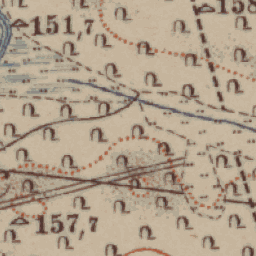 158
151,7
157,7